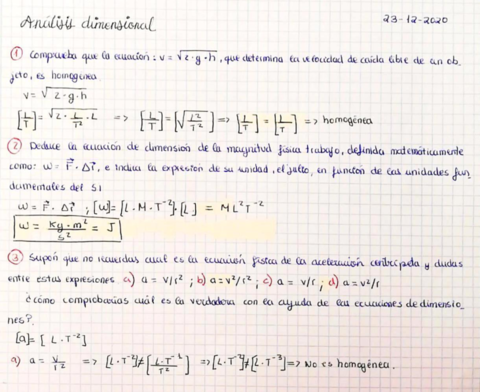 Análisis dimensional 23-12-2020
① Comprueba que la ecuación: v = √2·g·h, que determina la velocidad de caída libre de un ob
jeto, es homogénea.
v = √2·g·h
[L/T] = √2·L/T²·L => [L/T] = [√L²/T²] => [L/T] = [L/T] => homogénea
② Deduce la ecuación de dimensión de la magnitud física trabajo, definida matemáticamente
como: W = F⃗·Δr⃗, e indica la expresión de su unidad, el julio, en función de las unidades fun
damentales del SI
W = F⃗·Δr⃗ ; [W] = [L·M·T⁻²]·[L] = ML²T⁻²
W = Kg·m²/s² = J
③ Supón que no recuerdas cual es la ecuación física de la aceleración centrípeta y dudas
entre estas expresiones a) a = v/r² ; b) a = v²/r² ; c) a = v/r ; d) a = v²/r
¿cómo comprobarías cuál es la verdadera con la ayuda de las ecuaciones de dimensio-
nes?.
[a] = [L·T⁻²]
a) a = v/r² => [L·T⁻²] ≠ [L·T⁻¹/T²] => [L·T⁻²] ≠ [L·T⁻³] => No es homogénea.